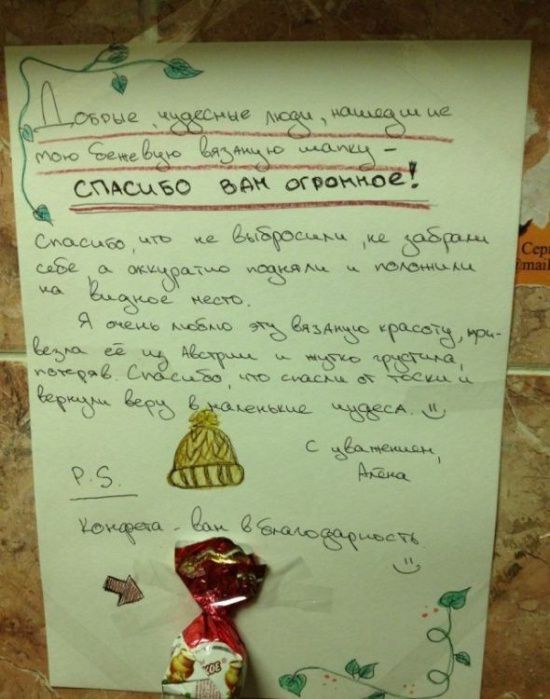 Добрые, чудесные люди, нашедшие
мою бежевую вязаную шапку –
СПАСИБО ВАМ ОГРОМНОЕ!
Спасибо, что не выбросили, не забрали
себе, а аккуратно подняли и положили
на видное место.
Я очень люблю эту вязаную красоту, при-
везла её из Австрии и жутко грустила,
потеряв. Спасибо, что спасли от тоски и
вернули веру в маленькие чудеса.
С уважением,
Алёна
P.S.
Конфета – вам в благодарность.
Сер
mail
КОЕ